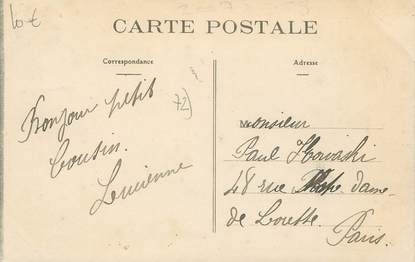 10 €
CARTE POSTALE
Correspondance
Adresse
72)
Bonjour petit
Cousin.
Lucienne
Monsieur
Paul
48 rue Dame-
de Lorette.
Paris.